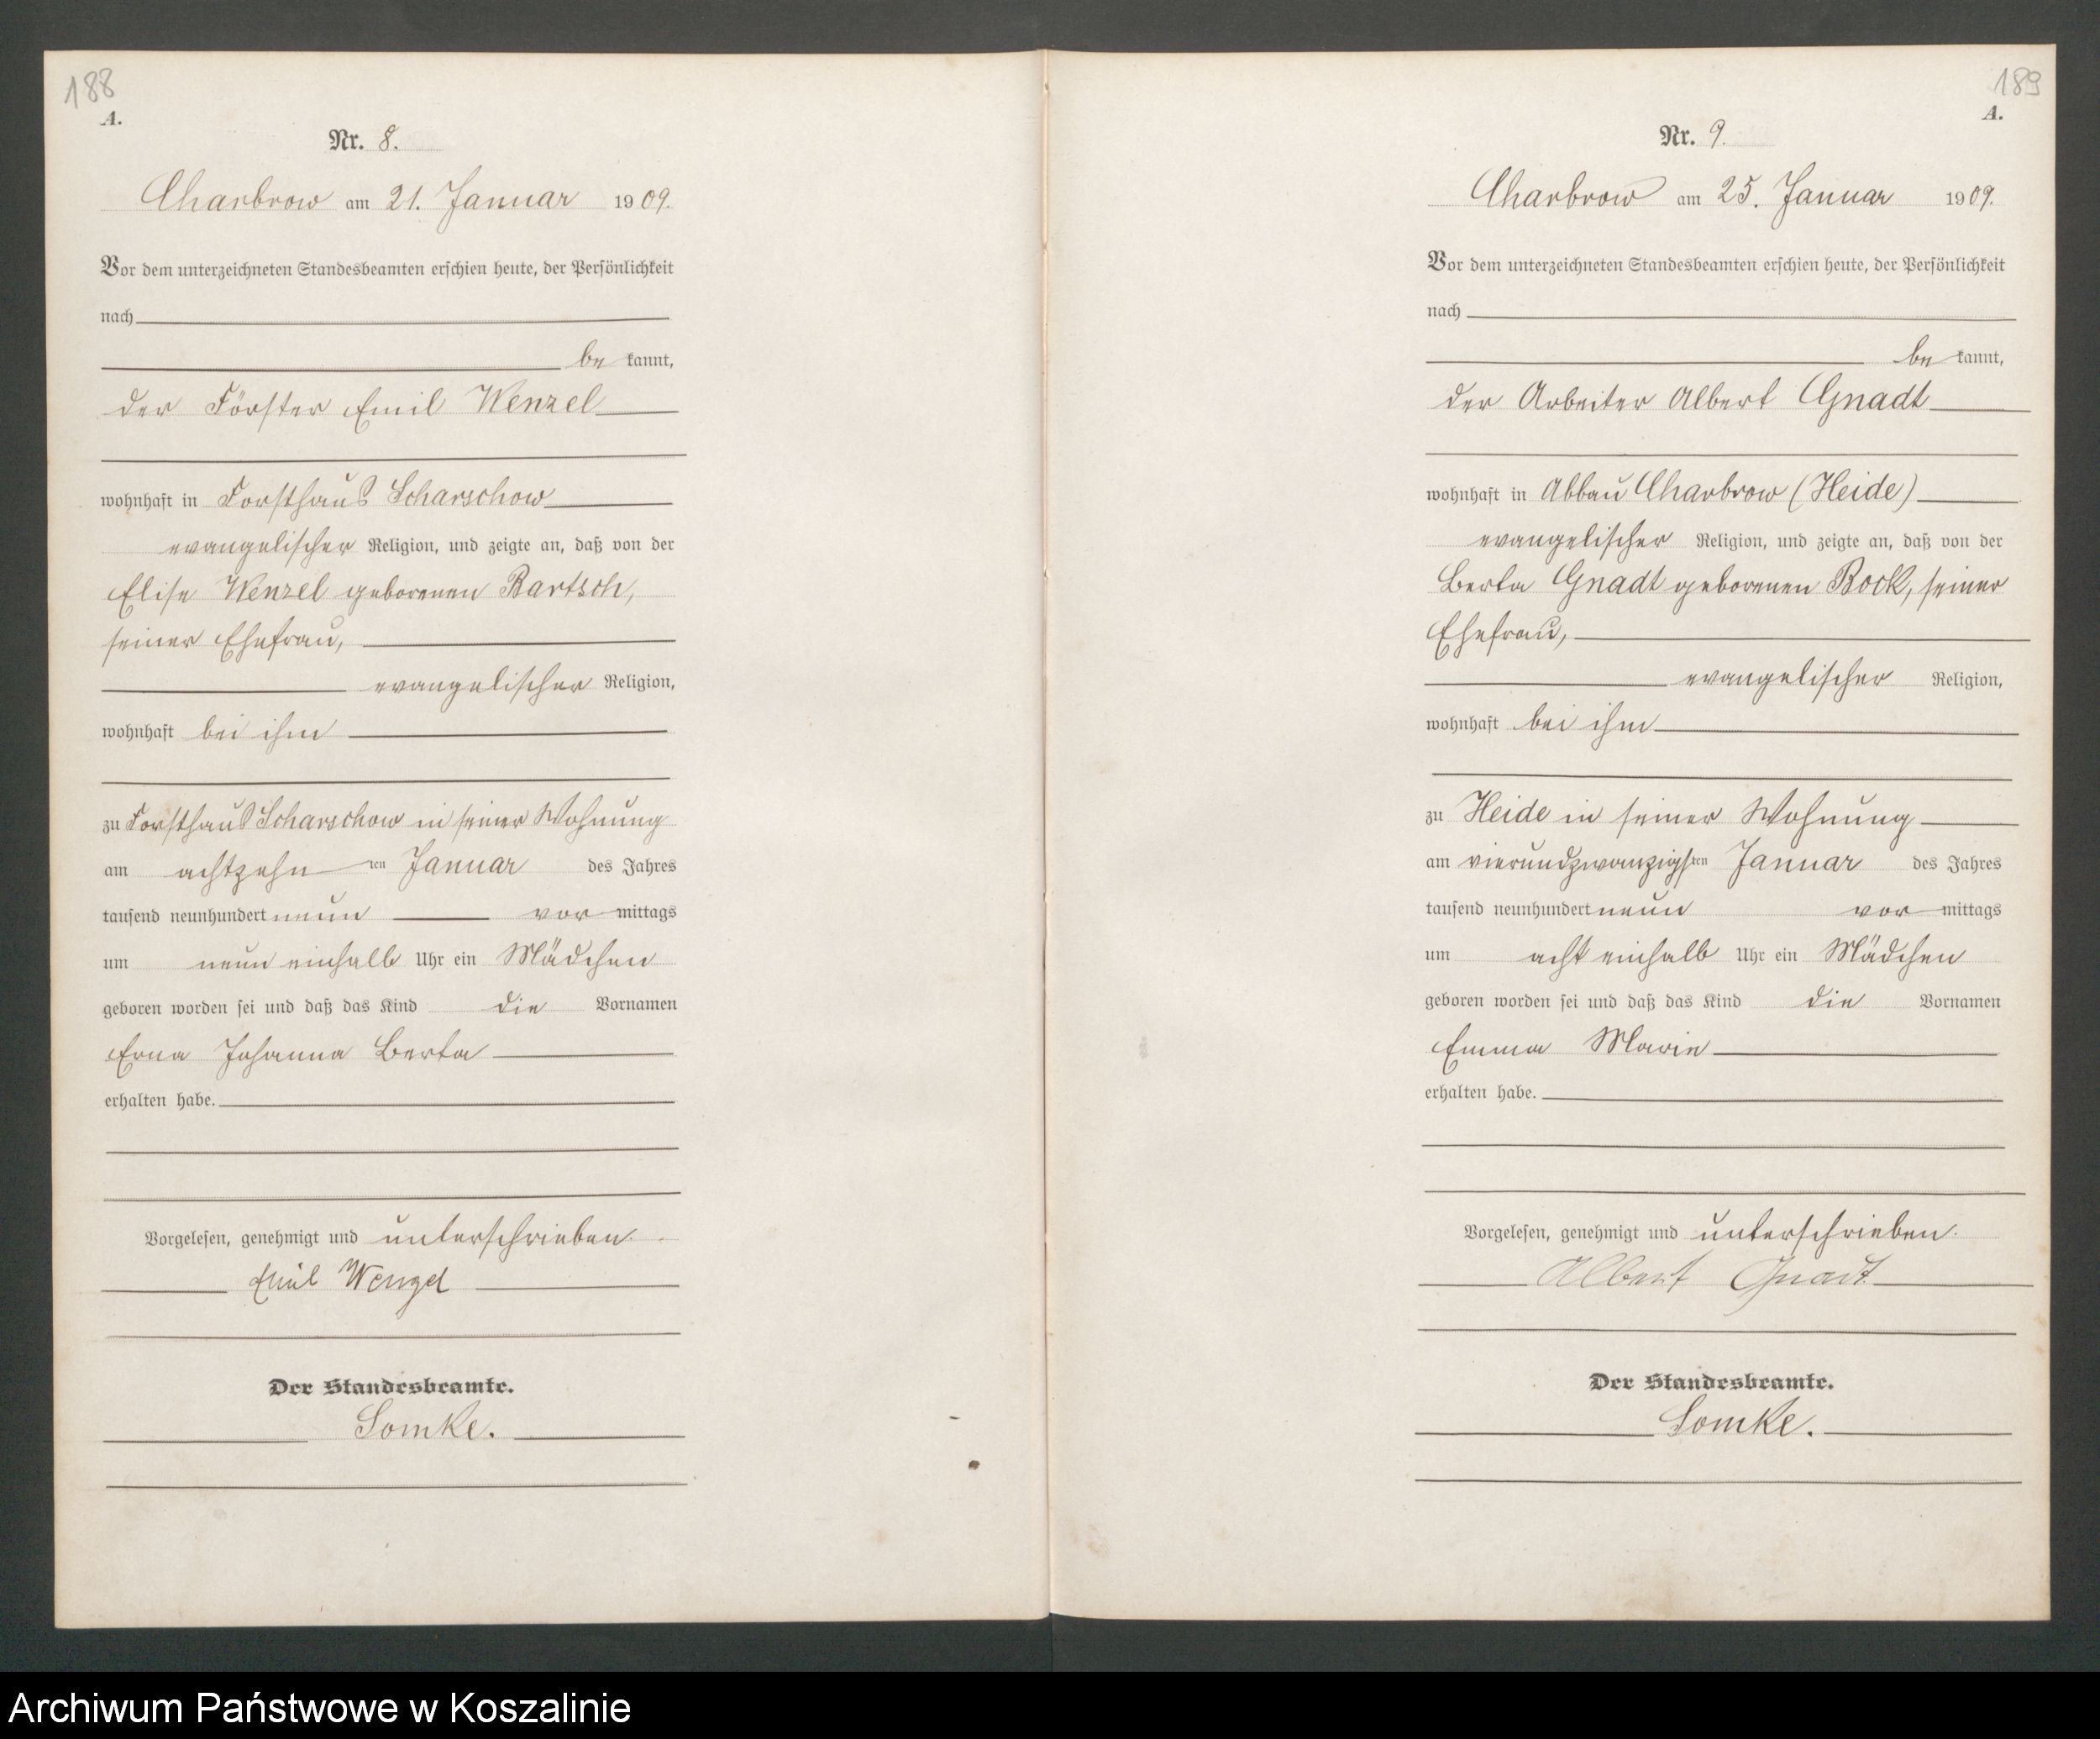 188
A.
Nr. 8.
Charbrow am 21. Januar 1909.
Vor dem unterzeichneten Standesbeamten erschien heute, der Persönlichkeit
nach
be kannt,
der Förster Emil Wenzel
wohnhaft in Forsthaus Scharschow
evangelischer Religion, und zeigte an, daß von der
Elise Wenzel geborenen Bartsch,
seiner Ehefrau,
evangelischer Religion,
wohnhaft bei ihm
zu Forsthaus Scharschow in seiner Wohnung
am achtzehn ten Januar des Jahres
tausend neunhundert neun vor mittags
um neun einhalb Uhr ein Mädchen
geboren worden sei und daß das Kind die Vornamen
Erna Johanna Berta
erhalten habe.
Vorgelesen, genehmigt und unterschrieben.
Emil Wenzel
Der Standesbeamte.
Lomke.
189
A.
Nr. 9.
Charbrow am 25. Januar 1909.
Vor dem unterzeichneten Standesbeamten erschien heute, der Persönlichkeit
nach
be kannt,
der Arbeiter Albert Gnadt
wohnhaft in Abbau Charbrow (Heide)
evangelischer Religion, und zeigte an, daß von der
Berta Gnadt geborenen Bock, seiner
Ehefrau,
evangelischer Religion,
wohnhaft bei ihm
zu Heide in seiner Wohnung
am vierundzwanzigsten Januar des Jahres
tausend neunhundert neun vor mittags
um acht einhalb Uhr ein Mädchen
geboren worden sei und daß das Kind die Vornamen
Emma Marie
erhalten habe.
Vorgelesen, genehmigt und unterschrieben.
Albert Gnadt
Der Standesbeamte.
Lomke.
Archiwum Państwowe w Koszalinie